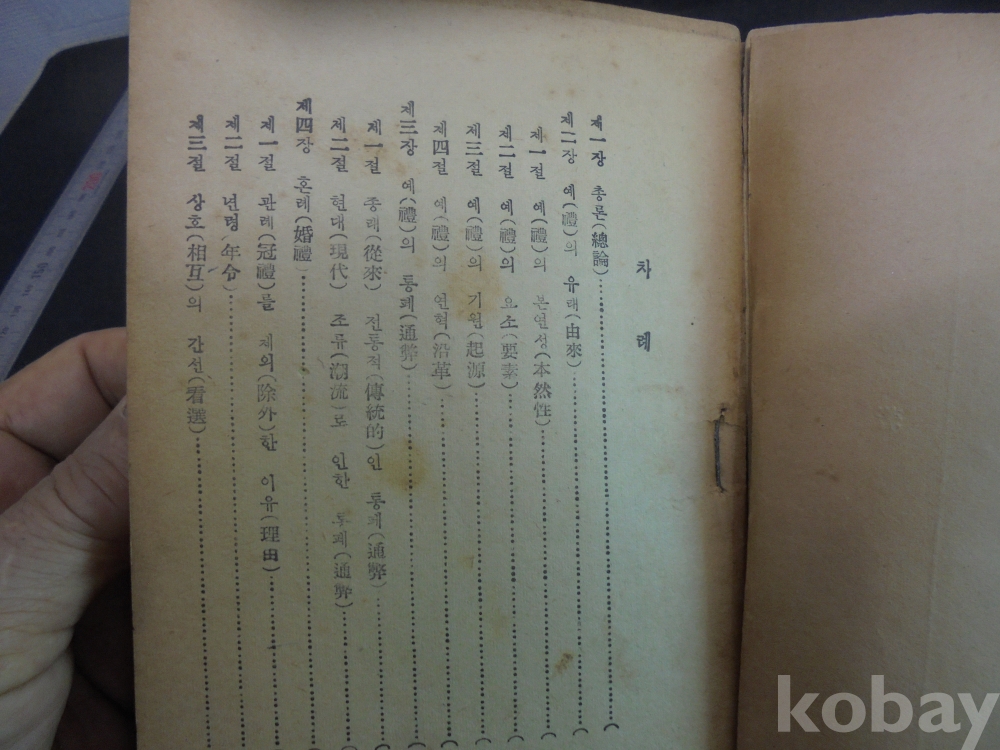 차례
제一장 총론(總論)
제二장 예(禮)의 유래(由來)
제一절 예(禮)의 본연성(本然性)
제二절 예(禮)의 요소(要素)
제三절 예(禮)의 기원(起源)
제四절 예(禮)의 연혁(沿革)
제三장 예(禮)의 통폐(通弊)
제一절 종래(從來) 전통적(傳統的)인 통폐(通弊)
제二절 현대(現代) 조류(潮流)로 인한 통폐(通弊)
제四장 혼례(婚禮)
제一절 관례(冠禮)를 제외(除外)한 이유(理由)
제二절 년령(年令)
제三절 상호(相互)의 간선(看選)
kobay